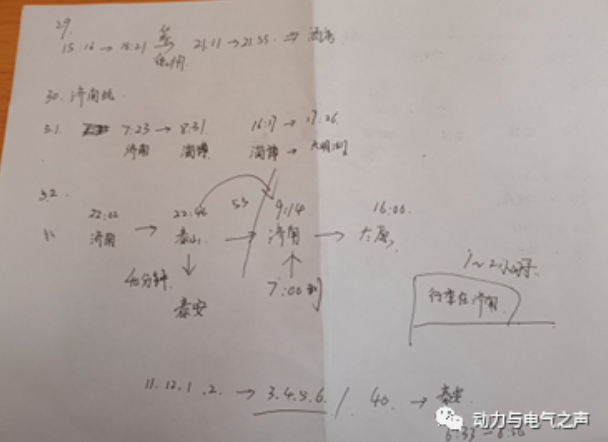 29.
15:16 → 18:21 21:11 → 21:35 ⇒ 济南
30. 济南站
5.1. 7:23 → 8:31 16:17 → 17:26
济南 淄博 淄博 → 大明湖
5.2
22:02 22:46 53 9:14 16:06
济南 → 泰山 → 济南 → 太原
40分钟 7:00到 1~2小时
泰安 行李在济南
11.12.1.2. → 3.4.5.6. / 40. → 泰安
动力与电气之声